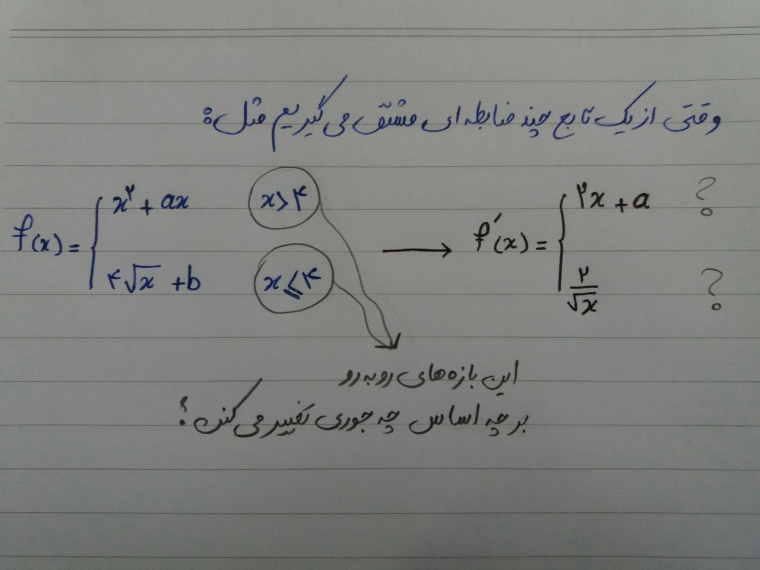 وقتی از یک تابع چند ضابطه ای مشتق می گیریم مثل:
f(x) = { x² + ax    x > ۴    → f′(x) = { ۲x + a    ?
۴√x + b    x ≤ ۴    ۲/√x    ?
این بازه های روبه رو
بر چه اساس چه جوری تغییر می کنن؟